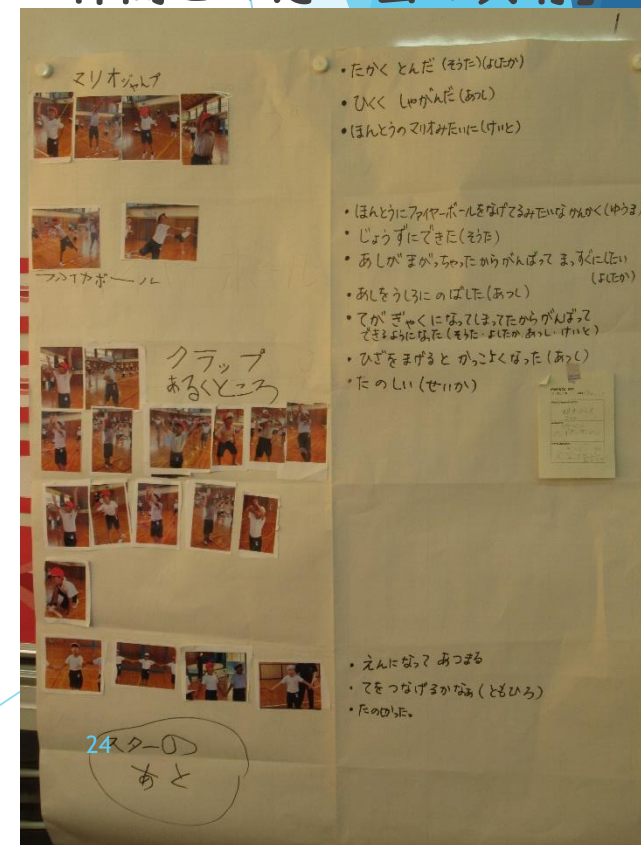 1
マリオジャンプ
・たかく とんだ (そうた)(よしたか)
・ひくく しゃがんだ(あつし)
・ほんとうのマリオみたいに(けいと)
ファイヤボール
・ほんとうにファイヤーボールをなげてるみたいな かんかく(ゆうま)
・じょうずにできた(そうた)
・あしが まがっちゃったからがんばって まっすぐにしたい
(よしたか)
・あしをうしろに のばした(あつし)
・てが ぎゃくに なってしまってたからがんばって
できるようになった(そうた・よしたか・あつし・けいと)
・ひざを まげると かっこよくなった(あつし)
・たのしい(せいか)
クラップ
あるくところ
・えんになって あつまる
・てをつなげるかなぁ(ともひろ)
・たのしかった。
スターの
あと
24